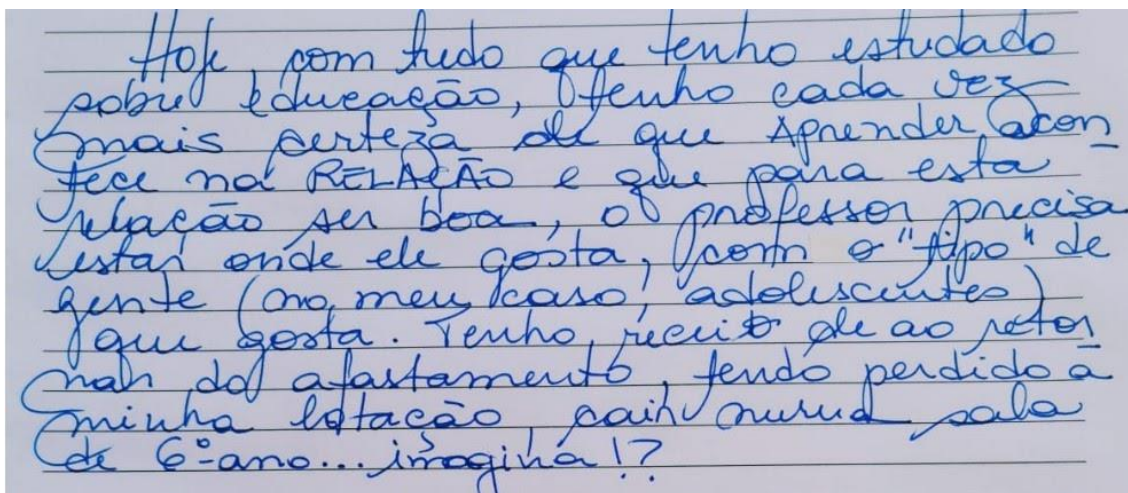 Hoje, com tudo que tenho estudado
sobre educação, tenho cada vez
mais certeza de que Aprender acon
tece na RELAÇÃO e que para esta
relação ser boa, o professor precisa
estar onde ele gosta, com o "tipo" de
gente (no meu caso, adolescentes)
que gosta. Tenho receio de ao retor
nar do afastamento, tendo perdido a
minha lotação, cair numa sala
de 6º ano... imagina!?